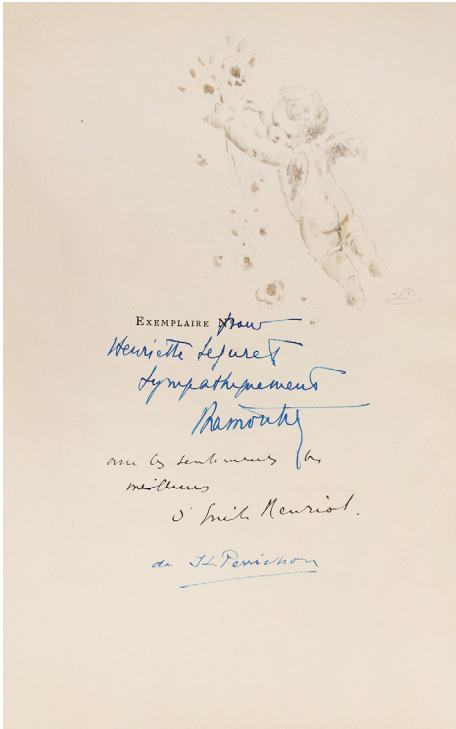 EXEMPLAIRE N° pour
Henriette Seguret
Sympathiquement
avec les sentiments les
meilleurs
d'Emile Henriot.
de JL Perrichon
JLP